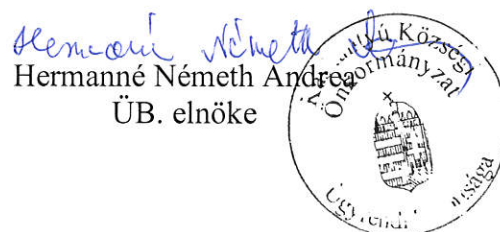 Németh
Hermanné Németh Andrea
ÜB. elnöke
Községi
Önkormányzat
Ügyrendi